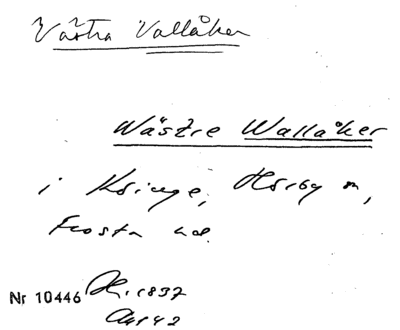 Västra Vallåker
Wästre Wallåker
i Kringe, Hörby sn,
Frosta hd.
Nr 10446 1837